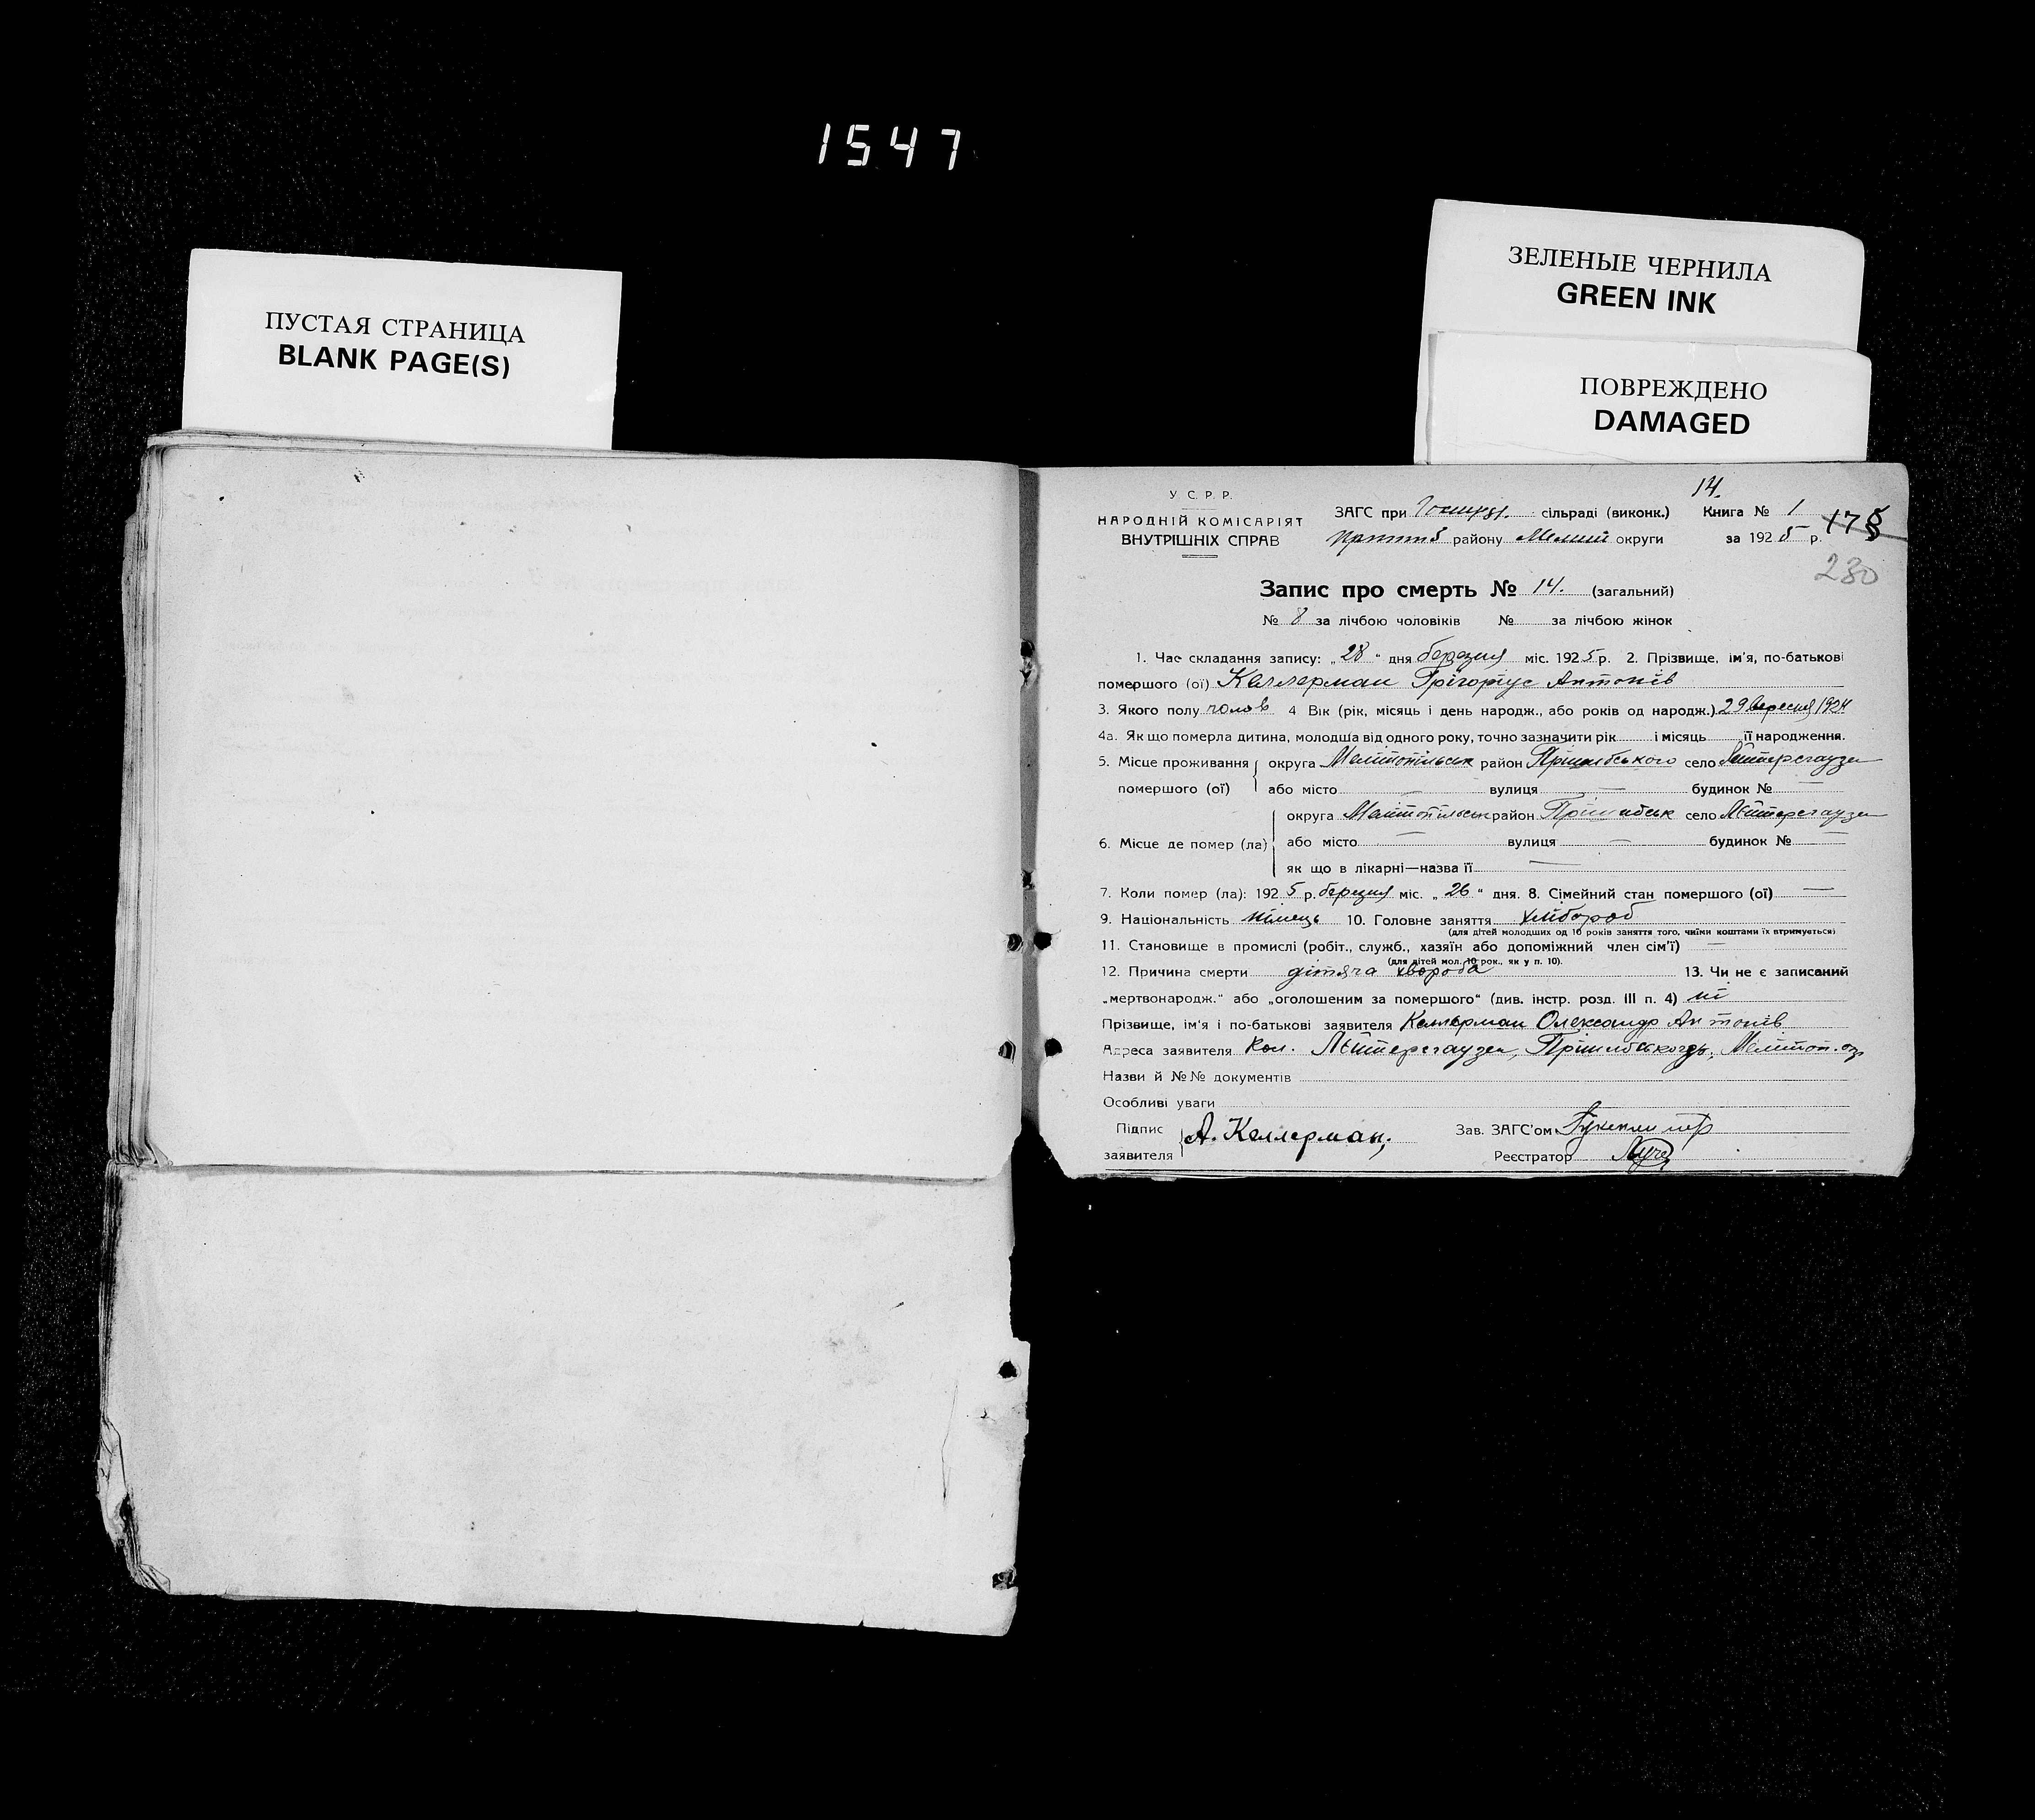 1547
ПУСТАЯ СТРАНИЦА
BLANK PAGE(S)
ЗЕЛЕНЫЕ ЧЕРНИЛА
GREEN INK
ПОВРЕЖДЕНО
DAMAGED
14.
У С. Р. Р.
НАРОДНІЙ КОМІСАРІЯТ
ВНУТРІШНІХ СПРАВ
ЗАГС при сільраді (виконк.) Книга № 1
району округи за 1925 р.
230
Запис про смерть № 14. (загальний)
№ 8 за лічбою чоловіків № за лічбою жінок
1. Час складання запису: „28“ дня березня міс. 1925 р. 2. Прізвище, ім'я, по-батькові
помершого (ої) Келлерман Грігоріус Антонів
3. Якого полу чолов 4 Вік (рік, місяць і день народж., або років од народж.) 29 вересня 1924
4а. Як що померла дитина, молодша від одного року, точно зазначити рік і місяць її народження.
5. Місце проживання округа Мелітопільськ район Прішибського село
помершого (ої) або місто — вулиця — будинок № —
округа Мелітопільськ район Прішибськ село
6. Місце де помер (ла) або місто — вулиця — будинок № —
як що в лікарні—назва її —
7. Коли помер (ла): 1925 р. березня міс. „26“ дня. 8. Сімейний стан помершого (ої) —
9. Національність німець 10. Головне заняття хлібороб
(для дітей молодших од 10 років заняття того, чиїми коштами їх втримується)
11. Становище в промислі (робіт., служб., хазяїн або допоміжний член сім'ї) —
(для дітей мол. 10 рок., як у п. 10).
12. Причина смерти дітяча хвороба 13. Чи не є записаний
„мертвонародж.“ або „оголошеним за помершого“ (див. інстр. розд. III п. 4) ні
Прізвище, ім'я і по-батькові заявителя Келлерман Олександр Антонів
Адреса заявителя Кол.
Назви й №№ документів
Особливі уваги
Підпис
заявителя А. Келлерман,
Зав. ЗАГС'ом
Реєстратор